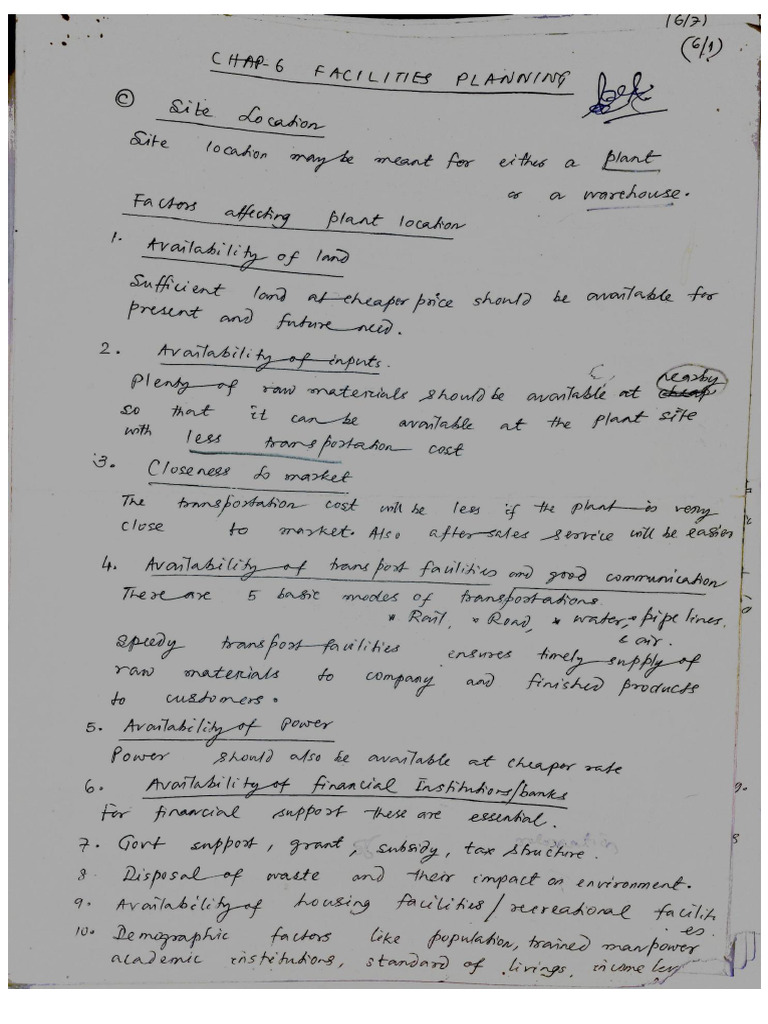 (6/7)
(6/1)
CHAP-6 FACILITIES PLANNING
© Site Location
Site location may be meant for either a plant
or a warehouse.
Factors affecting plant location
1. Availability of land
Sufficient land at cheaper price should be available for
present and future need.
2. Availability of inputs.
Plenty of raw materials should be available at nearby cheap
so that it can be available at the plant site
with less transportation cost
3. Closeness to market
The transportation cost will be less if the plant is very
close to market. Also after sales service will be easier
4. Availability of transport facilities and good communication
There are 5 basic modes of transportations.
* Rail, * Road, * water, * pipe lines.
& air.
Speedy transport facilities ensures timely supply of
raw materials to company and finished products
to customers.
5. Availability of Power
Power should also be available at cheaper rate
6. Availability of financial Institutions/banks
For financial support these are essential.
7. Govt support, grant, subsidy, tax structure.
8 Disposal of waste and their impact on environment.
9. Availability of housing facilities/recreational facilit
ies.
10. Demographic factors like population, trained manpower
academic institutions, standard of livings, income lev